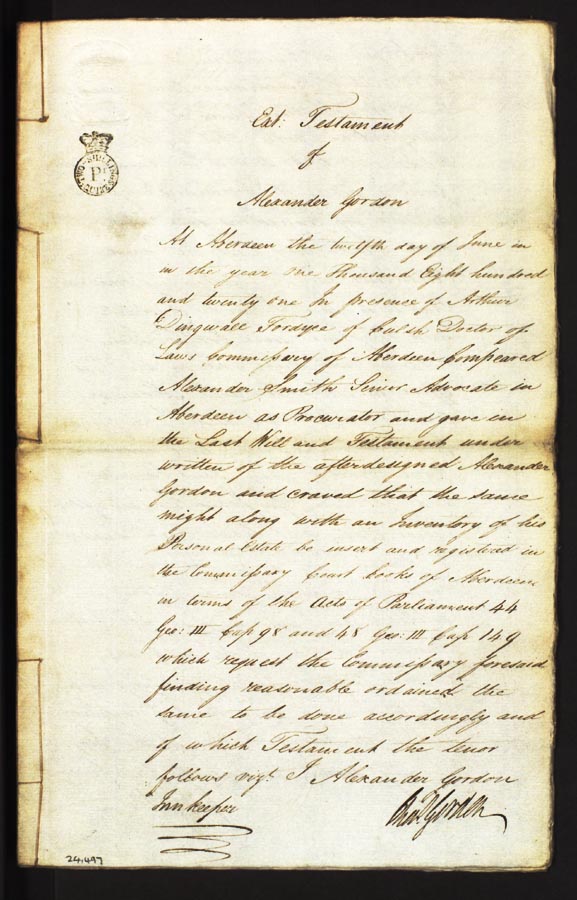 Ext: Testament
of
Alexander Gordon
At Aberdeen the twelfth day of June in
in the year one Thousand Eight hundred
and twenty one In presence of Arthur
Dingwall Fordyce of Culsh Doctor of
Laws Commissary of Aberdeen Compeared
Alexander Smith Senior Advocate in
Aberdeen as Procurator and gave in
the Last Will and Testament under
written of the afterdesigned Alexander
Gordon and craved that the same
might along with an Inventory of his
Personal Estate be insert and registrad in
the Commissary Court books of Aberdeen
in terms of the Acts of Parliament 44
Geo: III Cap 98 and 48 Geo: III Cap 149
which request the Commissary foresaid
finding reasonable ordained the
same to be done accordingly and
of which Testament the tenor
follows vizt. I Alexander Gordon
Innkeeper
Gordon
24.497